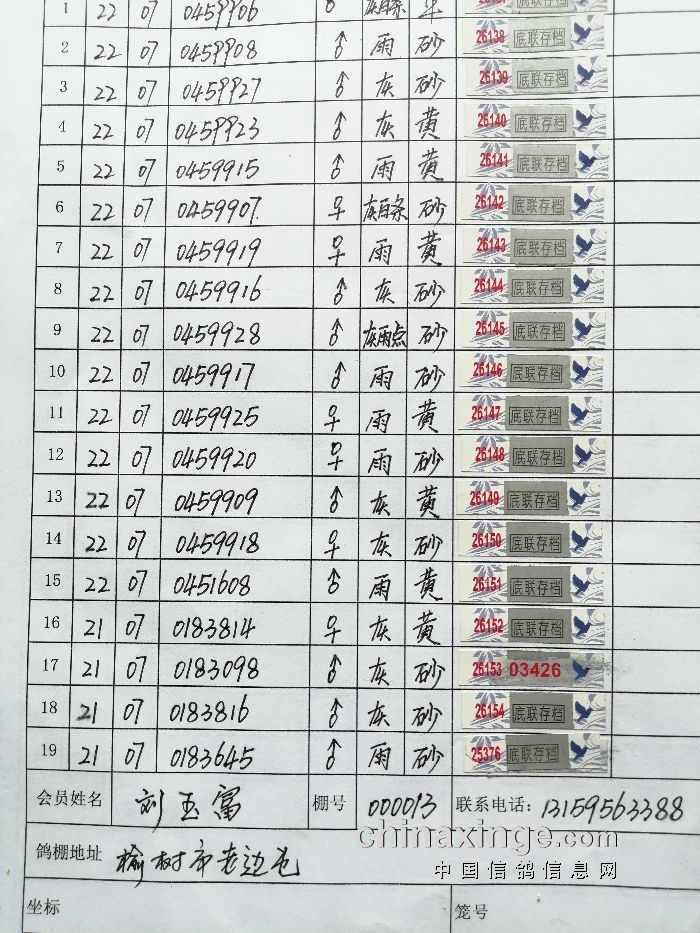 1 22 07 0459906 ♂ 灰白条
2 22 07 0459908 ♂ 雨 砂 26138 底联存档
3 22 07 0459927 ♂ 灰 砂 26139 底联存档
4 22 07 0459923 ♂ 灰 黄 26140 底联存档
5 22 07 0459915 ♂ 雨 黄 26141 底联存档
6 22 07 0459907 ♀ 灰白条 砂 26142 底联存档
7 22 07 0459919 ♀ 雨 黄 26143 底联存档
8 22 07 0459916 ♂ 灰 砂 26144 底联存档
9 22 07 0459928 ♂ 灰雨点 砂 26145 底联存档
10 22 07 0459917 ♂ 雨 砂 26146 底联存档
11 22 07 0459925 ♀ 雨 黄 26147 底联存档
12 22 07 0459920 ♀ 雨 砂 26148 底联存档
13 22 07 0459909 ♂ 灰 黄 26149 底联存档
14 22 07 0459918 ♀ 灰 砂 26150 底联存档
15 22 07 0451608 ♂ 雨 黄 26151 底联存档
16 21 07 0183814 ♀ 灰 黄 26152 底联存档
17 21 07 0183098 ♂ 灰 砂 26153 03426
18 21 07 0183816 ♂ 灰 砂 26154 底联存档
19 21 07 0183645 ♂ 雨 砂 25376 底联存档
会员姓名 刘玉富 棚号 000013 联系电话: 13159563388
chinaxinge.com
鸽棚地址 榆树市老边屯
中国信鸽信息网
坐标 笼号